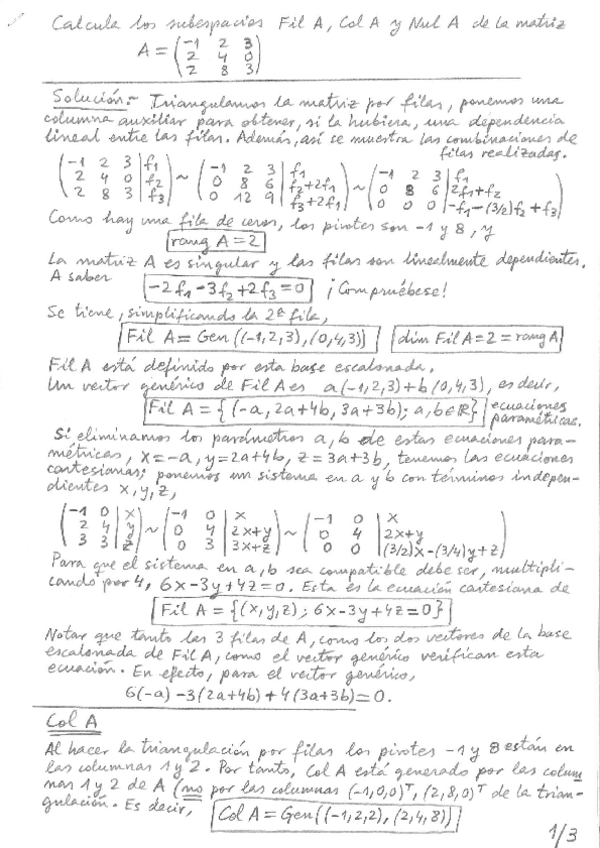 Calcula los subespacios Fil A, Col A y Nul A de la matriz
A = (-1 2 3
2 4 0
2 8 3)
Solución.- Triangulamos la matriz por filas, ponemos una
columna auxiliar para obtener, si la hubiera, una dependencia
lineal entre las filas. Además, así se muestra las combinaciones de
filas realizadas.
(-1 2 3 | f₁ ~ (-1 2 3 | f₁ ~ (-1 2 3 | f₁
2 4 0 | f₂ 0 8 6 | f₂+2f₁ 0 8 6 | 2f₁+f₂
2 8 3 | f₃) 0 12 9 | f₃+2f₁) 0 0 0 | -f₁-(3/2)f₂+f₃)
Como hay una fila de ceros, los pivotes son -1 y 8, y
rang A = 2
La matriz A es singular y las filas son linealmente dependientes.
A saber -2f₁-3f₂+2f₃=0 ¡Compruébese!
Se tiene, simplificando la 2ª fila,
Fil A = Gen((-1,2,3),(0,4,3)) dim Fil A = 2 = rang A
Fil A está definido por esta base escalonada.
Un vector genérico de Fil A es a(-1,2,3)+b(0,4,3), es decir,
Fil A = {(-a, 2a+4b, 3a+3b); a,b∈ℝ} ecuaciones
paramétricas.
Si eliminamos los parámetros a, b de estas ecuaciones para-
métricas, x=-a, y=2a+4b, z=3a+3b, tenemos las ecuaciones
cartesianas; ponemos un sistema en a y b con términos indepen-
dientes x, y, z,
(-1 0 | x ~ (-1 0 | x ~ (-1 0 | x
2 4 | y 0 4 | 2x+y 0 4 | 2x+y
3 3 | z) 0 3 | 3x+z) 0 0 | (3/2)x-(3/4)y+z)
Para que el sistema en a, b sea compatible debe ser, multipli-
cando por 4, 6x-3y+4z=0. Esta es la ecuación cartesiana de
Fil A = {(x,y,z); 6x-3y+4z=0}
Notar que tanto las 3 filas de A, como los dos vectores de la base
escalonada de Fil A, como el vector genérico verifican esta
ecuación. En efecto, para el vector genérico,
6(-a)-3(2a+4b)+4(3a+3b)=0.
Col A
Al hacer la triangulación por filas los pivotes -1 y 8 están en
las columnas 1 y 2. Por tanto, Col A está generado por las colum
nas 1 y 2 de A (no por las columnas (-1,0,0)ᵀ, (2,8,0)ᵀ de la trian-
gulación. Es decir, Col A = Gen((-1,2,2),(2,4,8))
1/3